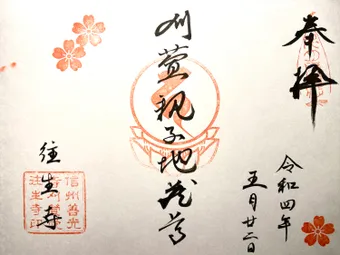 奉拝
令和四年
五月廿二日
刈萱親子地蔵尊
往生寺
信州善光
往生寺印